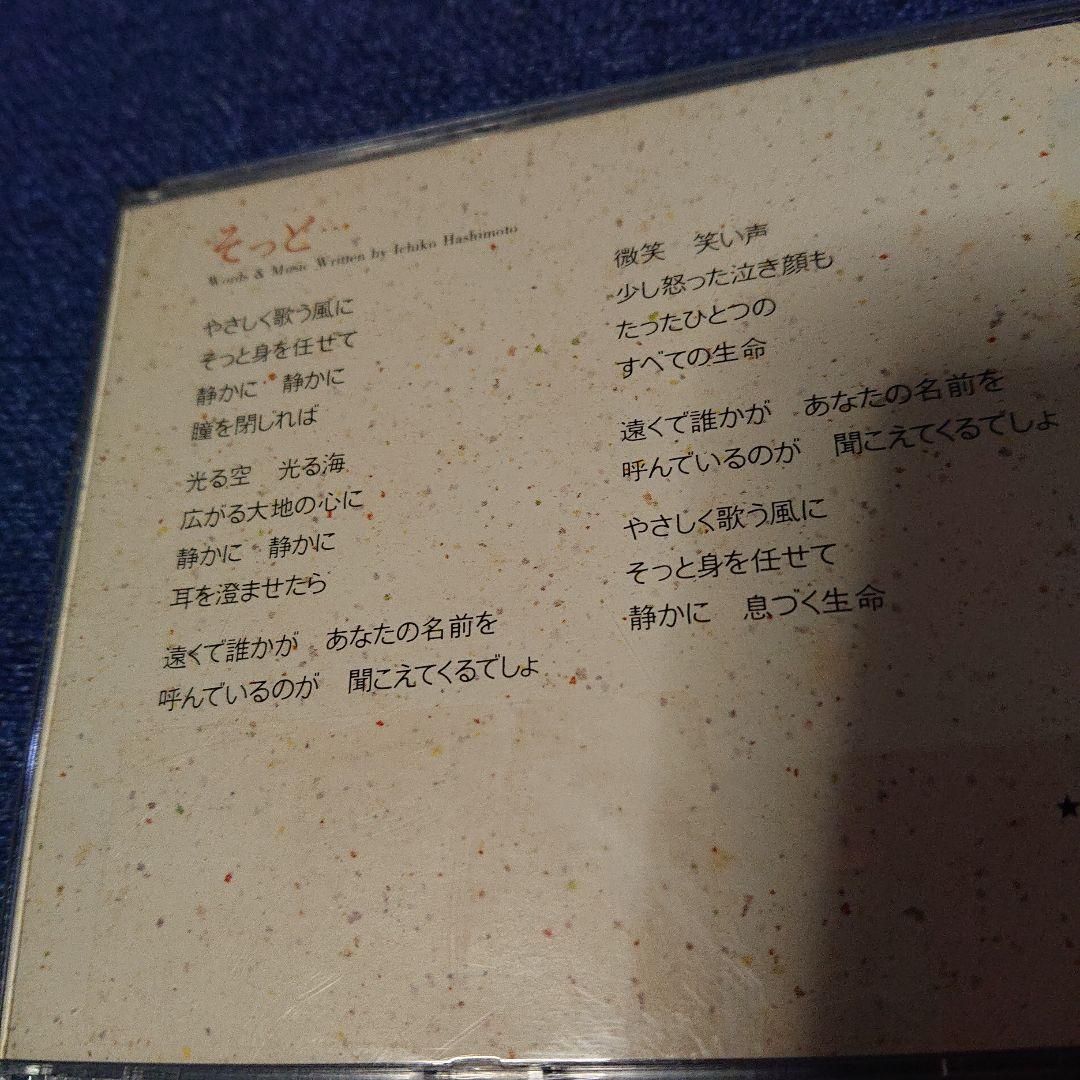 そっと…
Words & Music Written by Ichiko Hashimoto
やさしく歌う風に
そっと身を任せて
静かに　静かに
瞳を閉じれば
光る空　光る海
広がる大地の心に
静かに　静かに
耳を澄ませたら
遠くで誰かが　あなたの名前を
呼んでいるのが　聞こえてくるでしょ
微笑　笑い声
少し怒った泣き顔も
たったひとつの
すべての生命
遠くで誰かが　あなたの名前を
呼んでいるのが　聞こえてくるでしょ
やさしく歌う風に
そっと身を任せて
静かに　息づく生命
★